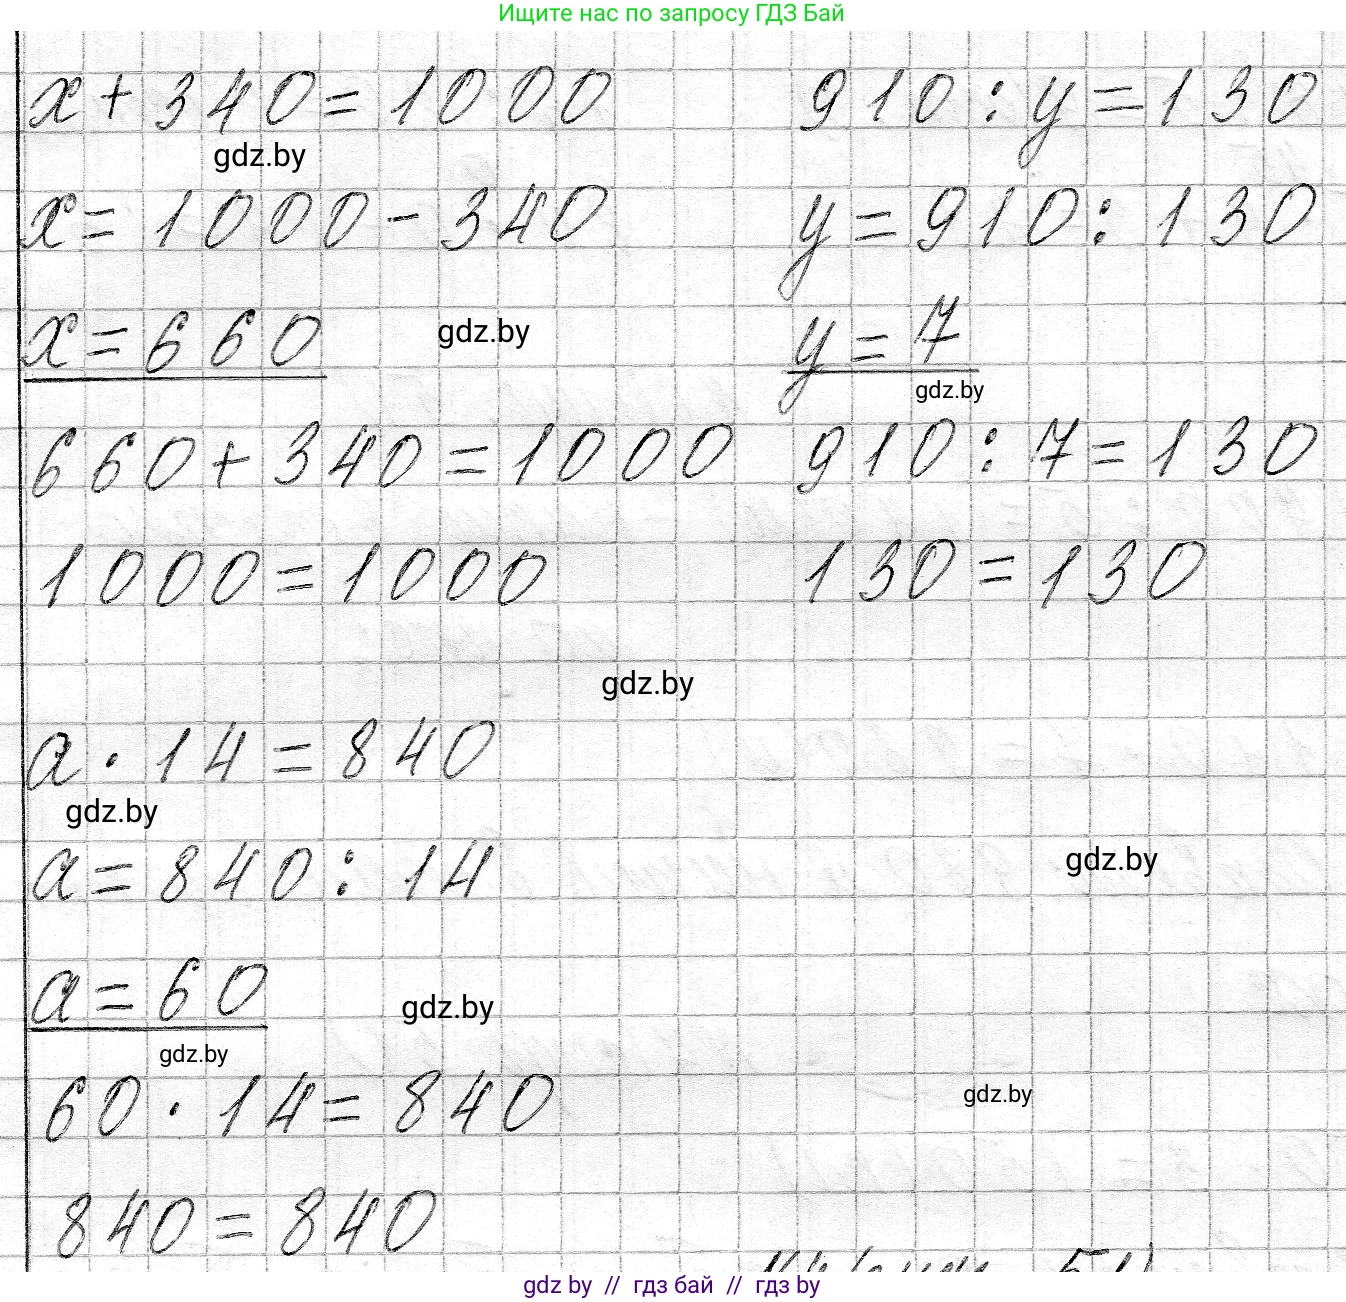 Ищите нас по запросу ГДЗ Бай
x + 340 = 1000
gdz.by
x = 1000 - 340
x = 660
gdz.by
660 + 340 = 1000
1000 = 1000
910 : y = 130
y = 910 : 130
y = 7
gdz.by
910 : 7 = 130
130 = 130
gdz.by
a · 14 = 840
gdz.by
a = 840 : 14
gdz.by
a = 60
gdz.by
gdz.by
60 · 14 = 840
gdz.by
840 = 840
gdz.by // гдз бай // гдз by